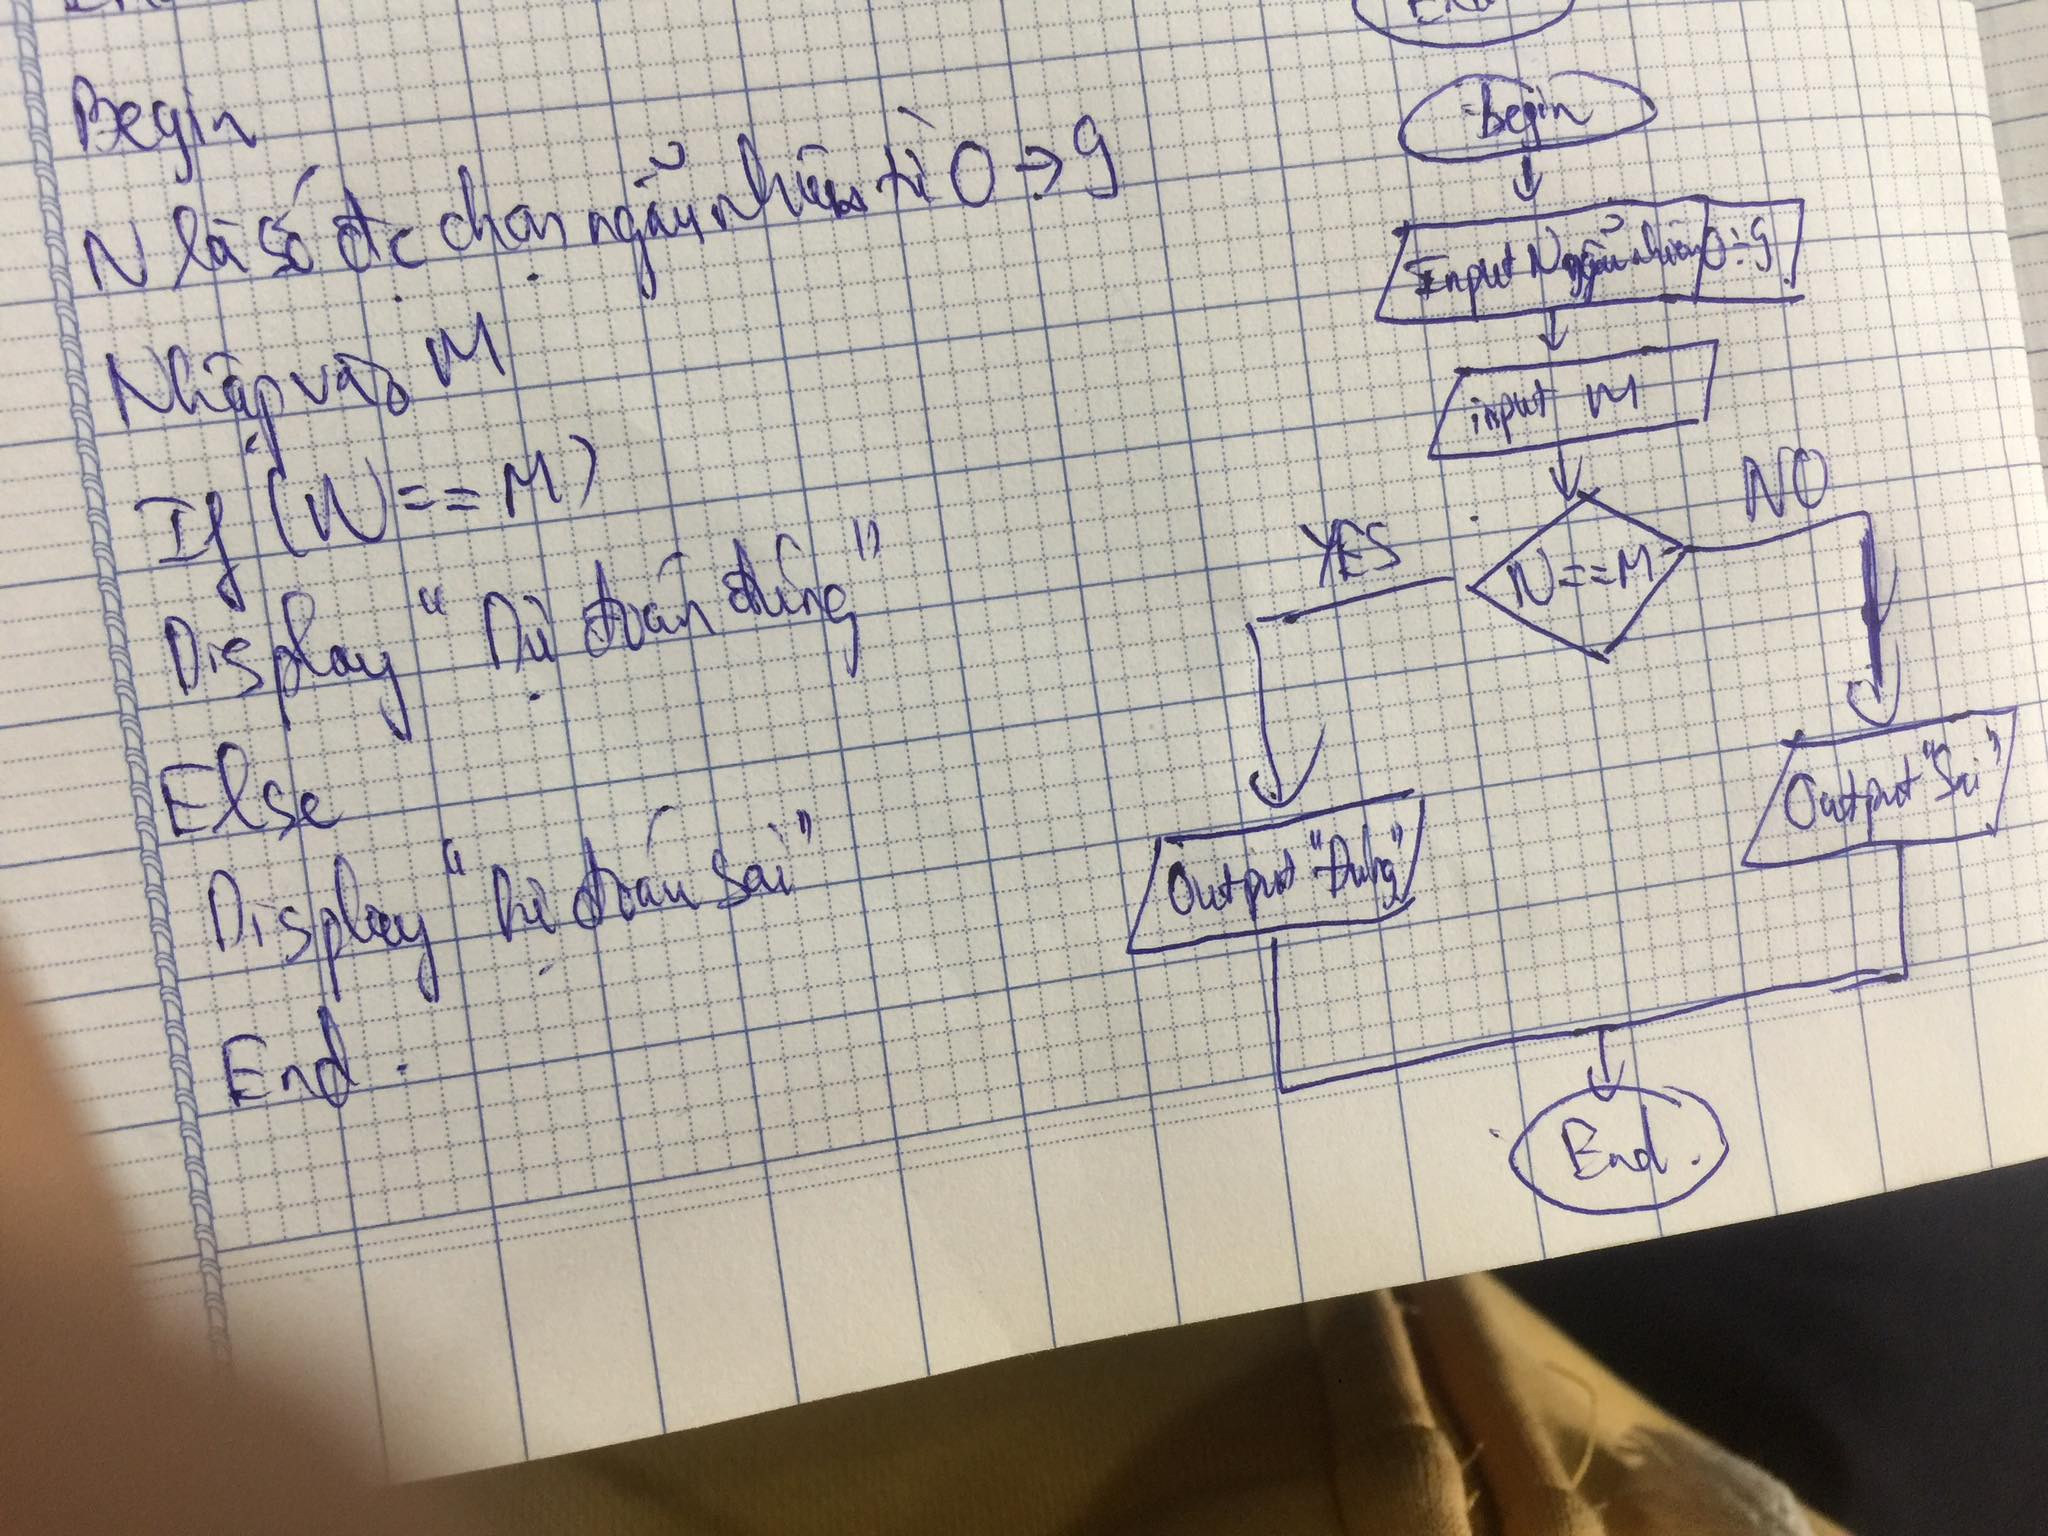 End
Begin
N là số đc chọn ngẫu nhiên từ 0 → 9
Nhập vào M
If (N == M)
Display "Dự đoán đúng"
Else
Display "Dự đoán sai"
End.
Begin
Input N ngẫu nhiên 0 → 9
input M
N == M
YES
NO
Output "Đúng"
Output "Sai"
End.